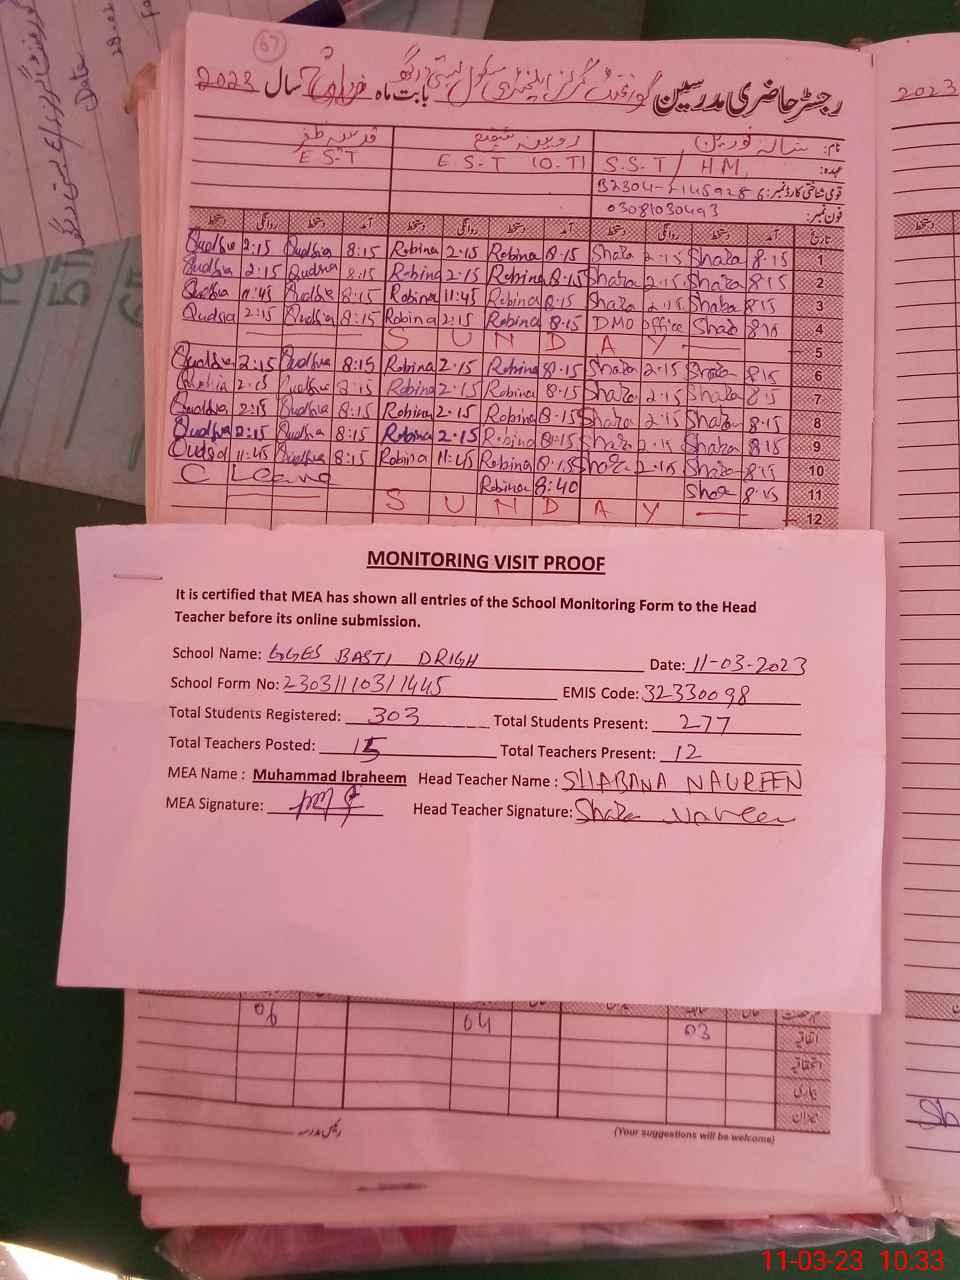 Date
67
رجسٹر حاضری مدرسین گورنمنٹ گرلز ایلیمنٹری سکول بستی درگھ بابت ماہ مارچ سال 2023
2023
نام: شبانہ نورین روبینہ شفیع قدسیہ ظفر
عہدہ: S.S.T / HM E.S.T (O.T) E.S.T
قومی شناختی کارڈ نمبر:
فون نمبر: 03081030493
تاریخ آمد دستخط روانگی دستخط آمد دستخط روانگی دستخط آمد دستخط روانگی دستخط
Qudsia 2:15 Qudsia 8:15 Robina 2:15 Robina 8:15 Shaba 2:15 Shaba 8:15 1
Qudsia 2:15 Qudsia 8:15 Robina 2:15 Robina 8:15 Shaba 2:15 Shaba 8:15 2
Qudsia 11:45 Qudsia 8:15 Robina 11:45 Robina 8:15 Shaba 2:15 Shaba 8:15 3
Qudsia 2:15 Qudsia 8:15 Robina 2:15 Robina 8:15 DMO office Shaba 8:10 4
S U N D A Y 5
Qudsia 2:15 Qudsia 8:15 Robina 2:15 Robina 8:15 Shaba 2:15 Shaba 8:15 6
Qudsia 2:15 Qudsia 8:15 Robina 2:15 Robina 8:15 Shaba 2:15 Shaba 8:15 7
Qudsia 2:15 Qudsia 8:15 Robina 2:15 Robina 8:15 Shaba 2:15 Shaba 8:15 8
Qudsia 2:15 Qudsia 8:15 Robina 2:15 Robina 8:15 Shaba 2:15 Shaba 8:15 9
Qudsia 11:45 Qudsia 8:15 Robina 11:45 Robina 8:15 Shaba 2:15 Shaba 8:15 10
C Leave Robina 8:40 Shaba 8:15 11
S U N D A Y 12
MONITORING VISIT PROOF
It is certified that MEA has shown all entries of the School Monitoring Form to the Head
Teacher before its online submission.
School Name: GGES BASTI DRIGH Date: 11-03-2023
School Form No: 23031110311445 EMIS Code: 32330098
Total Students Registered: 303 Total Students Present: 277
Total Teachers Posted: 15 Total Teachers Present: 12
MEA Name : Muhammad Ibraheem Head Teacher Name : SHABANA NAUREEN
MEA Signature: Head Teacher Signature: Shaba Naureen
06 04 03 اتفاقیہ
استحقاقیہ
بیماری
میزان
رئیس مدرسہ
(Your suggestions will be welcome)
Sh
11-03-23 10:33